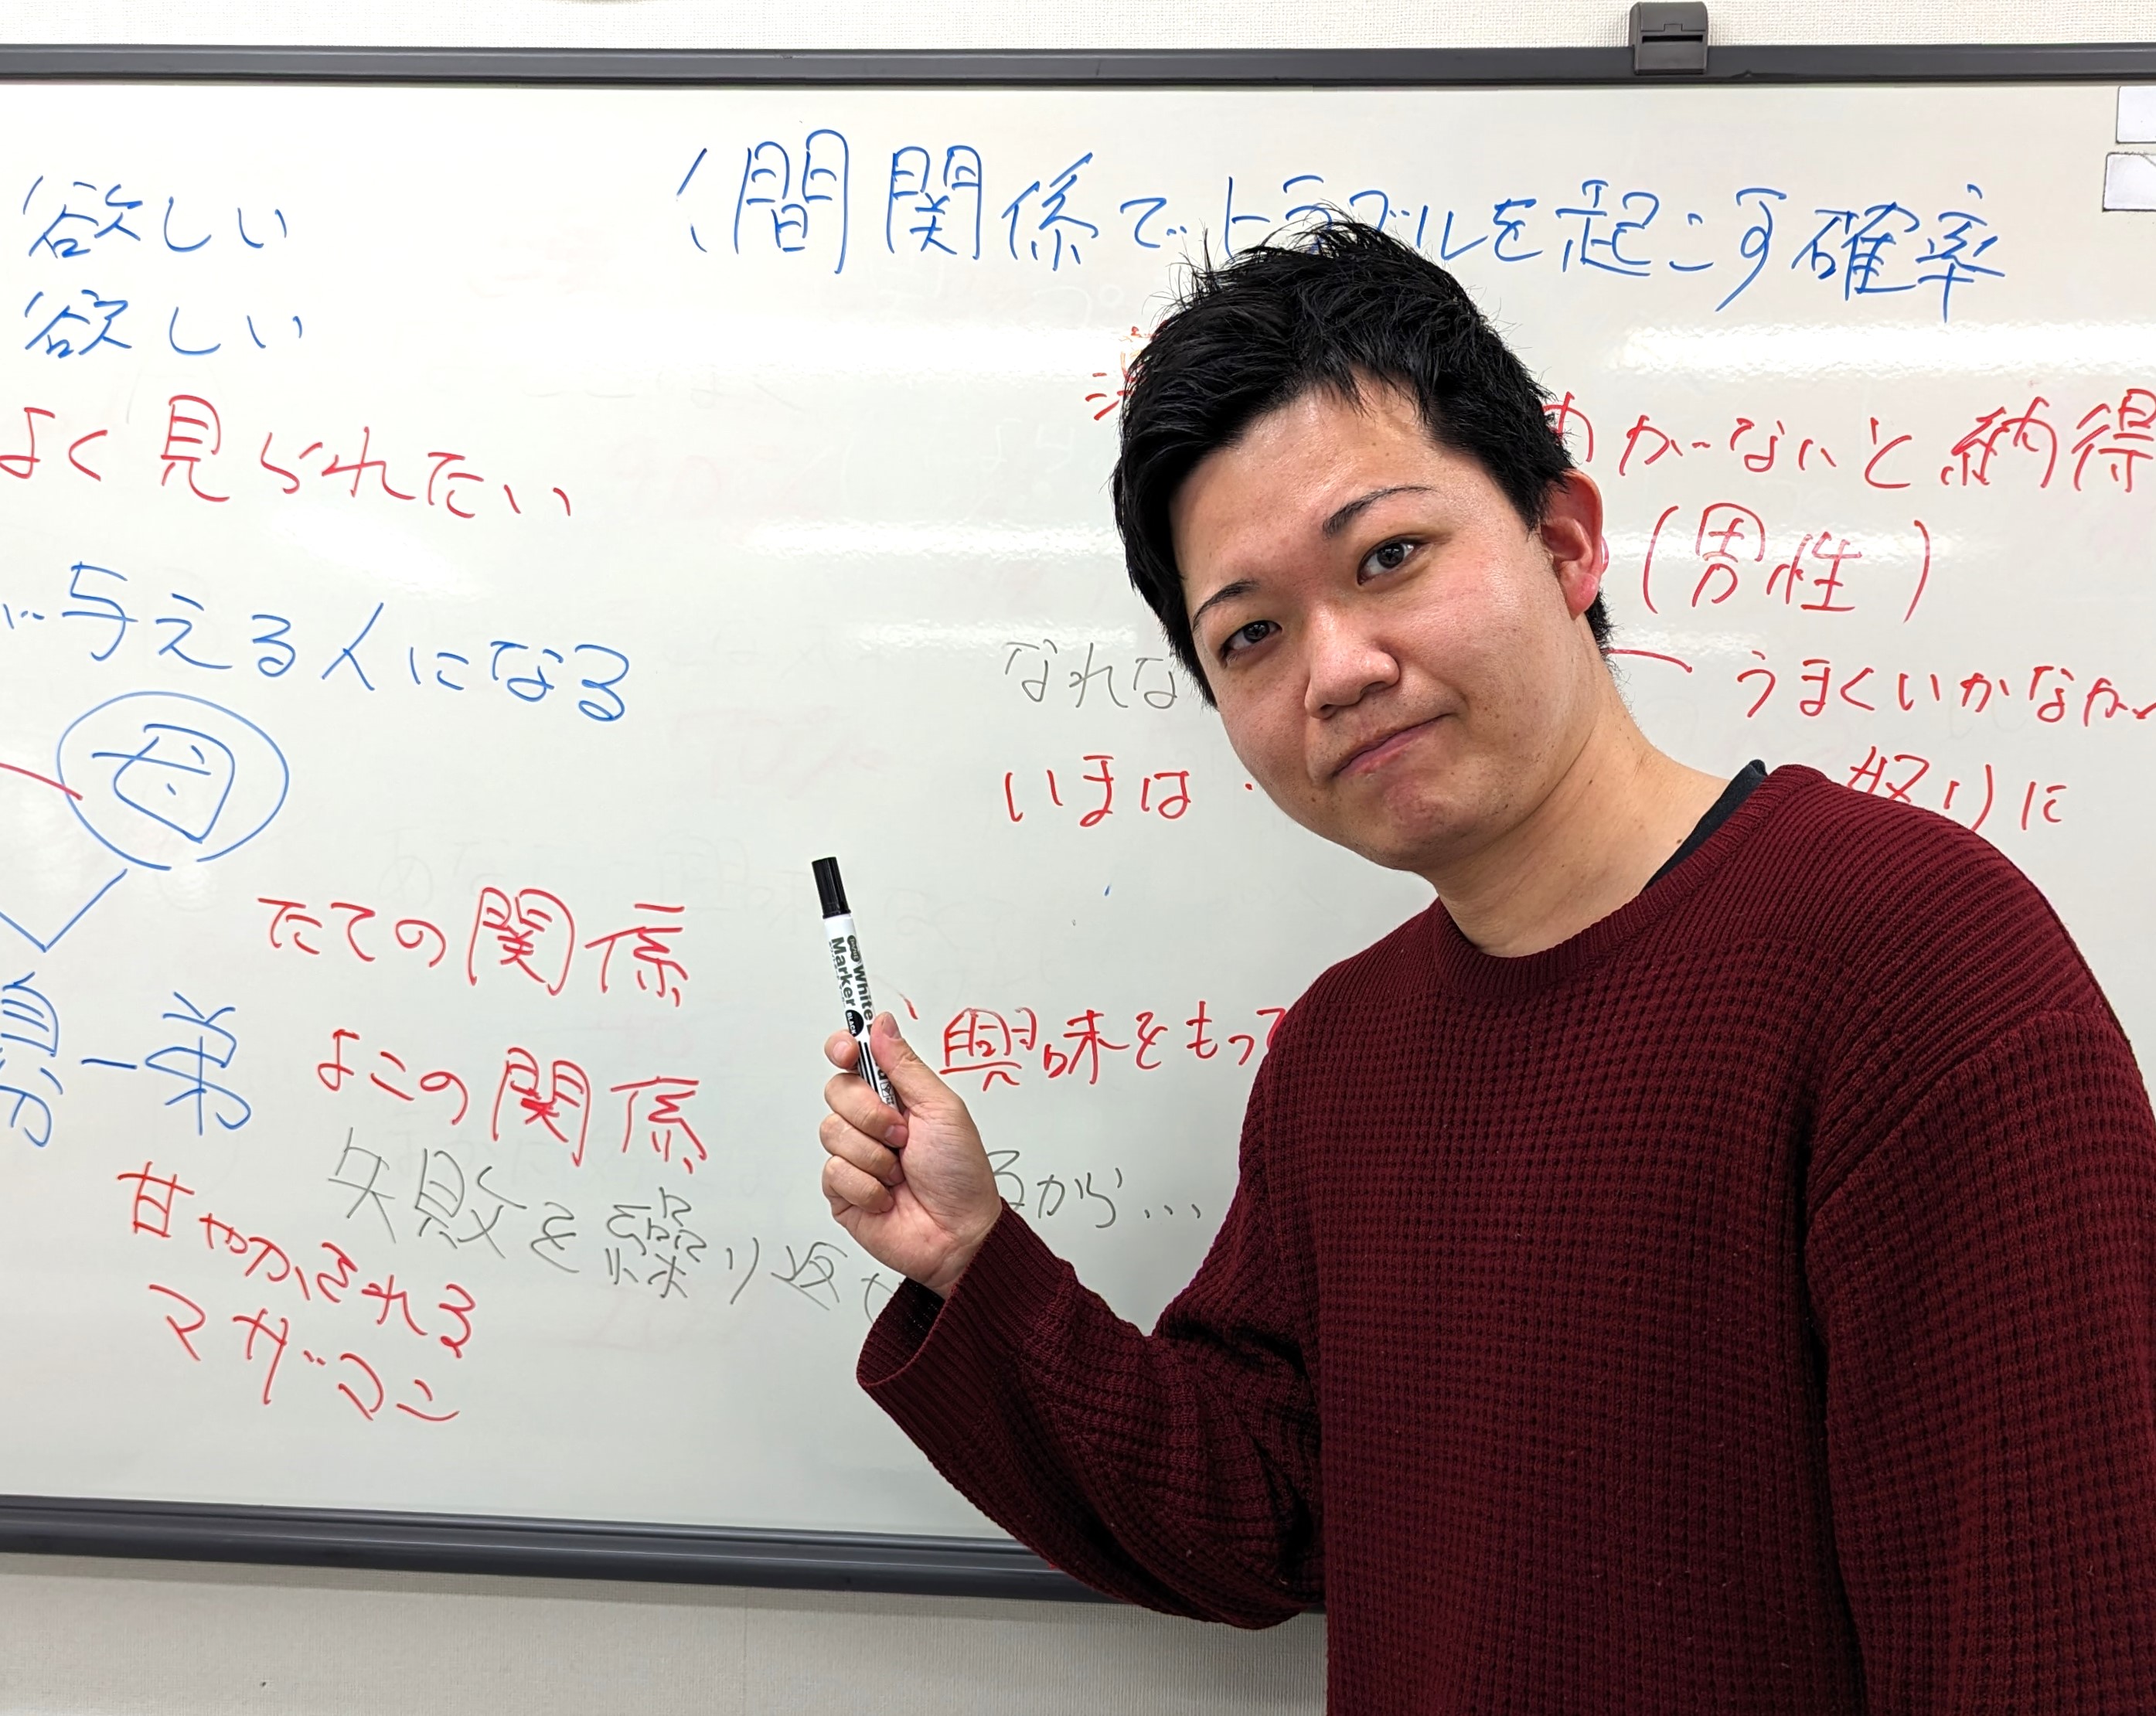 欲しい
欲しい
よく見られたい
与える人になる
母
たての関係
弟
よこの関係
失敗を繰り返せ
甘やかされる
マザコン
人間関係でトラブルを起こす確率
わかないと納得
(男性)
なれな
うまくいかなか
いまは
怒りに
興味をもって
るから…
White
Marker
BLACK